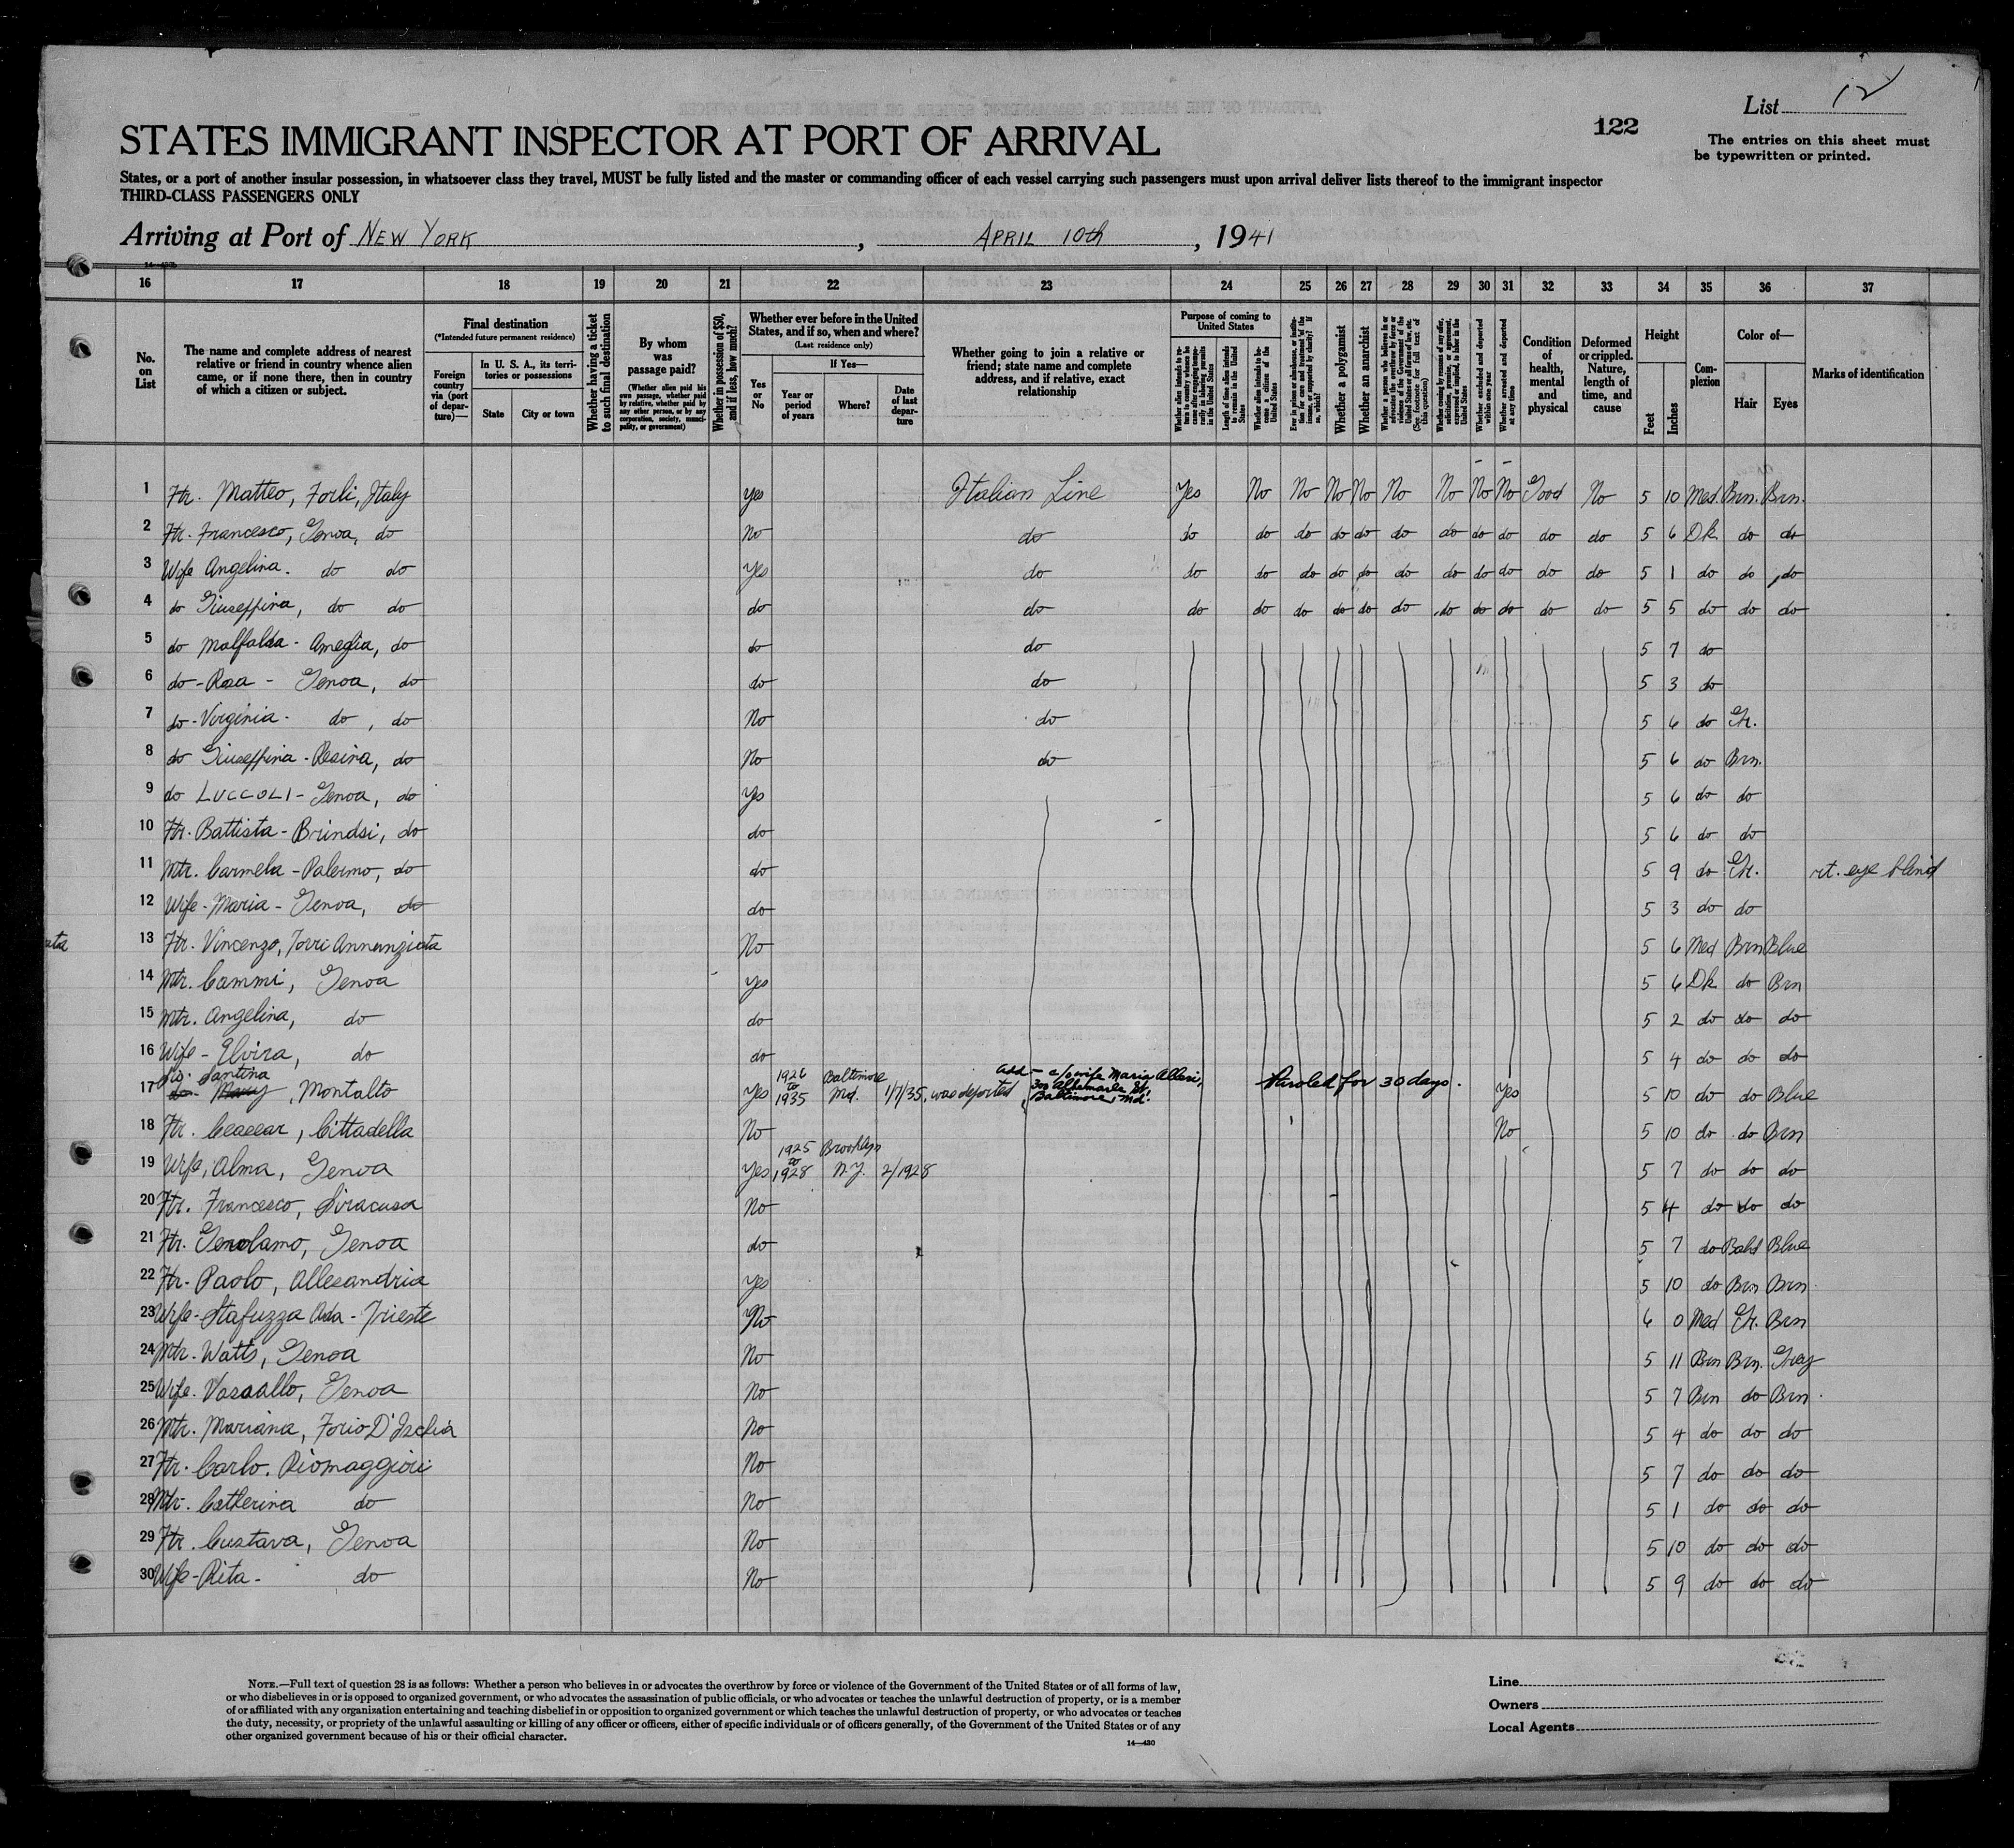 List 12
122
The entries on this sheet must
be typewritten or printed.
STATES IMMIGRANT INSPECTOR AT PORT OF ARRIVAL
States, or a port of another insular possession, in whatsoever class they travel, MUST be fully listed and the master or commanding officer of each vessel carrying such passengers must upon arrival deliver lists thereof to the immigrant inspector
THIRD-CLASS PASSENGERS ONLY
Arriving at Port of NEW YORK, APRIL 10th, 1941
16 17 18 19 20 21 22 23 24 25 26 27 28 29 30 31 32 33 34 35 36 37
No. on List
The name and complete address of nearest relative or friend in country whence alien came, or if none there, then in country of which a citizen or subject.
Final destination
(*Intended future permanent residence)
Foreign country via (port of departure)—
In U. S. A., its territories or possessions
State
City or town
Whether having a ticket to such final destination
By whom was passage paid?
(Whether alien paid his own passage, whether paid by relative, whether paid by any other person, or by any corporation, society, municipality, or government)
Whether in possession of $50, and if less, how much?
Whether ever before in the United States, and if so, when and where?
(Last residence only)
Yes or No
If Yes—
Year or period of years
Where?
Date of last departure
Whether going to join a relative or friend; state name and complete address, and if relative, exact relationship
Purpose of coming to United States
Length of time alien intends to remain in the United States
Whether alien intends to become a citizen of the United States
Whether a polygamist
Whether an anarchist
Whether excluded and deported within one year
Whether arrested and deported at any time
Condition of health, mental and physical
Deformed or crippled. Nature, length of time, and cause
Height
Feet
Inches
Complexion
Color of—
Hair
Eyes
Marks of identification
1 Ftr. Matteo, Forli, Italy Yes Italian Line Yes No No No No No No No No Good No 5 10 Med. Brn. Brn.
2 Ftr. Francesco, Genoa, do No do do do do do do do do do do do do 5 6 Dk do do
3 Wife Angelina. do do Yes do do do do do do do do do do do do 5 1 do do do
4 do Giuseffina, do do do do do do do do do do do do do do do 5 5 do do do
5 do Malfalda - Ameglia, do do do 5 7 do
6 do - Rosa - Genoa, do do do 5 3 do
7 do - Virginia - do, do No do 5 6 do Gr.
8 do Giuseffina - Resina, do No do 5 6 do Brn.
9 do LUCCOLI - Genoa, do Yes 5 6 do do
10 Ftr. Battista - Brindsi, do do 5 6 do do
11 Mtr. Carmela - Palermo, do do 5 9 do Gr. rt. eye blind
12 Wife - Maria - Genoa, do do 5 3 do do
ata 13 Ftr. Vincenzo, Torri Annunziata No 5 6 Med Brn Blue
14 Mtr. Cammi, Genoa Yes 5 6 Dk do Brn
15 Mtr. Angelina, do do 5 2 do do do
16 Wife - Elvira, do do 5 4 do do do
17 Santina, Montalto Yes 1926 to 1935 Baltimore Md. 1/7/35, was deported Add - c/o wife Maria Allesi, 300 Albemarle St, Baltimore, Md. Paroled for 30 days. Yes 5 10 do do Blue
18 Ftr. Ceaeear, Cittadella No No 5 10 do do Brn
19 Wife, Alma, Genoa Yes 1925 to 1928 Brooklyn N.Y. 2/1928 5 7 do do do
20 Ftr. Francesco, Siracusa No 5 4 do do do
21 Ftr. Genolamo, Genoa do 5 7 do Bald Blue
22 Ftr. Paolo, Allesandria Yes 5 10 do Brn Brn.
23 Wife - Stafuzza Ada - Trieste No 6 0 Med Gr. Brn
24 Mtr. Watts, Genoa No 5 11 Brn Brn. Grey
25 Wife. Vassallo, Genoa No 5 7 Brn do Brn.
26 Mtr. Mariana, Forio D'Ischia No 5 4 do do do
27 Ftr. Carlo. Riomaggiori No 5 7 do do do
28 Mtr. Catherina do No 5 1 do do do
29 Ftr. Custava, Genoa No 5 10 do do do
30 Wife - Rita - do No 5 9 do do do
NOTE.—Full text of question 28 is as follows: Whether a person who believes in or advocates the overthrow by force or violence of the Government of the United States or of all forms of law,
or who disbelieves in or is opposed to organized government, or who advocates the assassination of public officials, or who advocates or teaches the unlawful destruction of property, or is a member
of or affiliated with any organization entertaining and teaching disbelief in or opposition to organized government or which teaches the unlawful destruction of property, or who advocates or teaches
the duty, necessity, or propriety of the unlawful assaulting or killing of any officer or officers, either of specific individuals or of officers generally, of the Government of the United States or of any
other organized government because of his or their official character.
14—430
Line
Owners
Local Agents